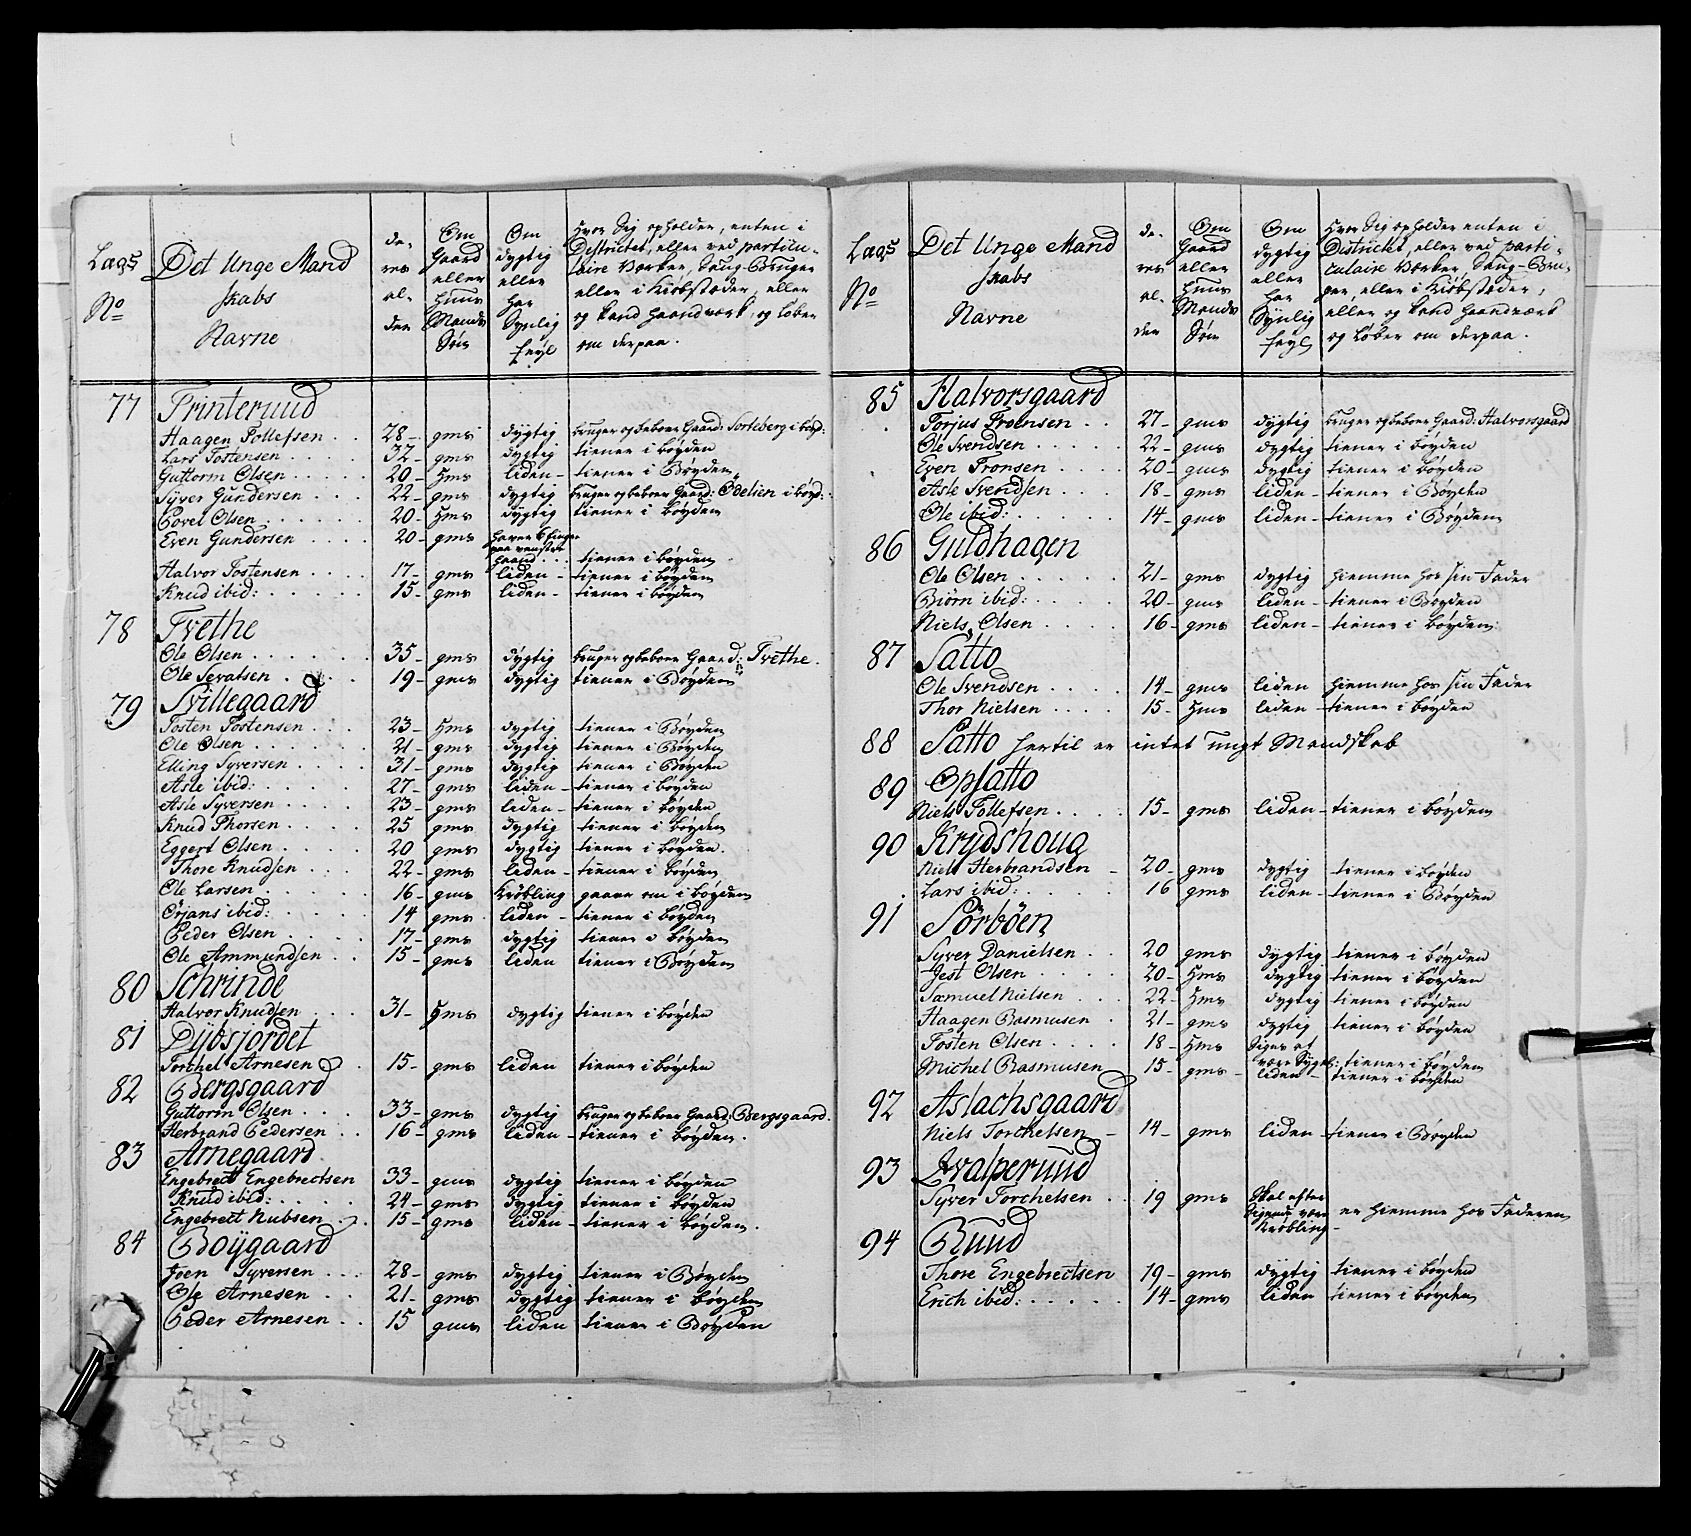 Lags No
Det Unge Mand skabs Navne
de- res al- der
Om Gaard eller Huus Mands Søn
Om dygtig eller har Synlig feyl
Hvor Sig opholder, enten i Districtet, eller ved particu- laire Verker, Saug-Bruger eller i Kiøbstæder, eller og kand haandværk, og løber om derpaa.
77 Printeruud
Haagen Tollefsen . . 28- gms dÿgtig bruger og beboer Gaard: Sorteberg i bøyd:
Lars Tostensen . . . . 32- gms dygtig tiener i bøyden
Guttorm Olsen . . . . . 20- Hms liden- tiener i Bøyden
Syver Gundersen . . . 22- gms dygtig bruger og beboer Gaard: Ödelien i bøyd:
Povel Olsen . . . . . . 20- Hms dÿgtig tiener i bøyden
Even Gundersen . . . . 20- gms haver finger paa venstre haand . . . tiener i bøyden
Halvor Tostensen . . . . 17- gms liden- tiener i bøyden
Knud ibid: . . . . . . 15- gms liden- tiener i bøyden
78 Tvethe
Ole Olsen . . . . . . . 35- gms dÿgtig bruger og beboer Gaard: Tvethe.
Ole Sevatsen . . . . 19- gms dygtig tiener i Bøyden
79 Svillegaard
Tosten Tostensen . . . 23- Hms dygtig tiener i Bøyden
Ole Olsen . . . . . . 21- gms dygtig tiener i Bøyden
Elling Syversen . . . . 31- gms dygtig tiener i Bøyden
Asle ibid: . . . . . . 27- gms liden- tiener i bøyden
Asle Syversen . . . . 23- gms liden- tiener i bøyden
Knud Thorsen . . . . 25 gms dygtig tiener i bøyden
Eggert Olsen . . . . . 20 gms dygtig tiener i bøyden.
Thore Knudsen . . . . 22- gms liden- tiener i bøyden
Ole Larsen . . . . . . 16- gms Krøbling gaaer om i bøyden
Örjans ibid: . . . . . 14 gms liden- tiener i bøyden
Peder Olsen . . . . . 17- gms dygtig tiener i bøyden
Ole Ammundsen . . 15- gms liden tiener i Bøyden
80 Schrinde
Halvor Knudsen . . . 31- Hms dygtig tiener i bøyden
81 Dybsjordet
Torchel Arnesen . 15- gms liden tiener i bøyden
82 Bergsgaard
Guttorm Olsen . . . 33- gms dygtig bruger og beboer Gaard: Bergsgaard.
Herbrand Pedersen . . 16- gms liden- tiener i bøyden.
83 Arnegaard
Engebrett Engebrectsen 33- gms dygtig tiener i bøyden
Knud ibid: . . . . . 24- gms dygtig tiener i bøyden
Engebrett Nubsen . . 15- gms liden- tiener i bøyden.
84 Boygaard
Joen Syversen . . . 28- gms dygtig tiener i Bøyden
Ole Arnesen . . 21- gms dygtig tiener i bøyden
Peder Arnesen . . 15 gms liden tiener i Bøyden
Lags No
Det Unge Mand skabs Navne
de- res al- der
Om Gaard eller Huus Mands Søn
Om dygtig eller har Synlig feyl
Hvor Sig opholder enten i Districtet, eller ved parti- culaire Verker, Saug-Bru- ger, eller i Kiøbstæder, eller og kand haandværk og løber om derpaa.
85 Halvorsgaard
Torjus Troensen . . 27- gms dygtig bruger og beboer Gaard: Halvorsgaard
Ole Svendsen . . . . 22- gms dygtig tiener i bøyden
Even Tronsen . . . . 20- gms dygtig tiener i bøyden
Asle Svendsen . . . 18- gms liden- tiener i Bøyden
Ole ibid: . . . . . . 14- gms liden- tiener i Bøyden
86 Guldhagen
Ole Olsen . . . . . 21- gms dygtig hiemme hos sin Fader
Biørn ibid: . . . . 20- gms liden- tiener i Bøyden
Niels Olsen . . . . 16- gms liden- tiener i bøyden:
87 Satto
Ole Svendsen . . . . 14- gms liden hiemme hos sin Fader
Thor Nielsen . . . . 15- Hms liden- tiener i bøyden
88 Satto hertil er intet Ungt Mandskab
89 Opsatto
Niels Tollefsen . . . . 15- gms liden- tiener i bøyden
90 Krydshoug
Niels Herbrandsen - 20- gms dygtig tiener i bøyden
Lars ibid: . . . . . 16 gms liden- tiener i Bøyden
91 Sörböen
Syver Danielsen . . 20 gms dÿgtig tiener i bøyden
Jest Olsen . . . . 20- Hms dygtig tiener i bøyden
Samuel Nielsen . . . 22- Hms dygtig tiener i bøyden
Haagen Rasmusen . 21- gms dygtig tiener i bøyden
Tosten Olsen . . . . 18- Hms Siges at være Sygel: tiener i bøyden
Michel Rasmusen 15- gms- liden- tiener i bøyden
92 Aslachsgaard
Niels Torchelsen - 14- gms liden- tiener i Bøyden
93 Qvalperuud
Syver Torchelsen . . 19 gms Skal efter Sigende være Krøbling- er hiemme hos Faderen
94 Ruud
Thore Engebrectsen 19- gms dygtig tiener i bøyden
Erich ibid: . . . . . 14- gms liden tiener i bøyden